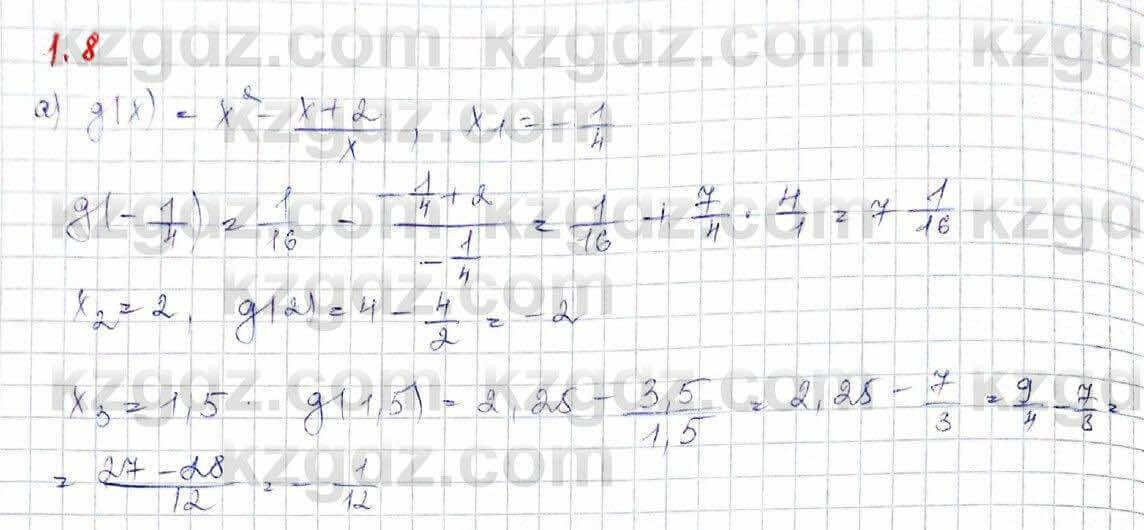 1.8
а) g(x) = x² - (x+2)/x, x₁ = -1/4
g(-1/4) = 1/16 - (-1/4+2)/(-1/4) = 1/16 + 7/4 · 4/1 = 7 1/16
x₂ = 2, g(2) = 4 - 4/2 = -2
x₃ = 1,5. g(1,5) = 2,25 - 3,5/1,5 = 2,25 - 7/3 = 9/4 - 7/3 =
= (27-28)/12 = -1/12
kzgdz.com kzgdz.com kzgdz.com
kzgdz.com kzgdz.com kzgdz.com
kzgdz.com kzgdz.com kzgdz.com
kzgdz.com
kzgdz.com kzgdz.com kzgdz.com
kzgdz.com